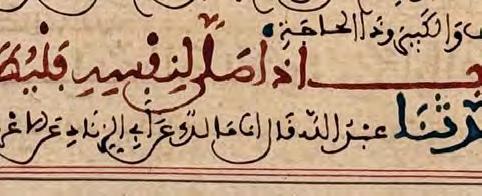 والكبير وذا الحاجة
باب اذا صلى لنفسه فليطو
حدثنا عبد الله قال انا مالك عن أبي الزناد عن الاعر